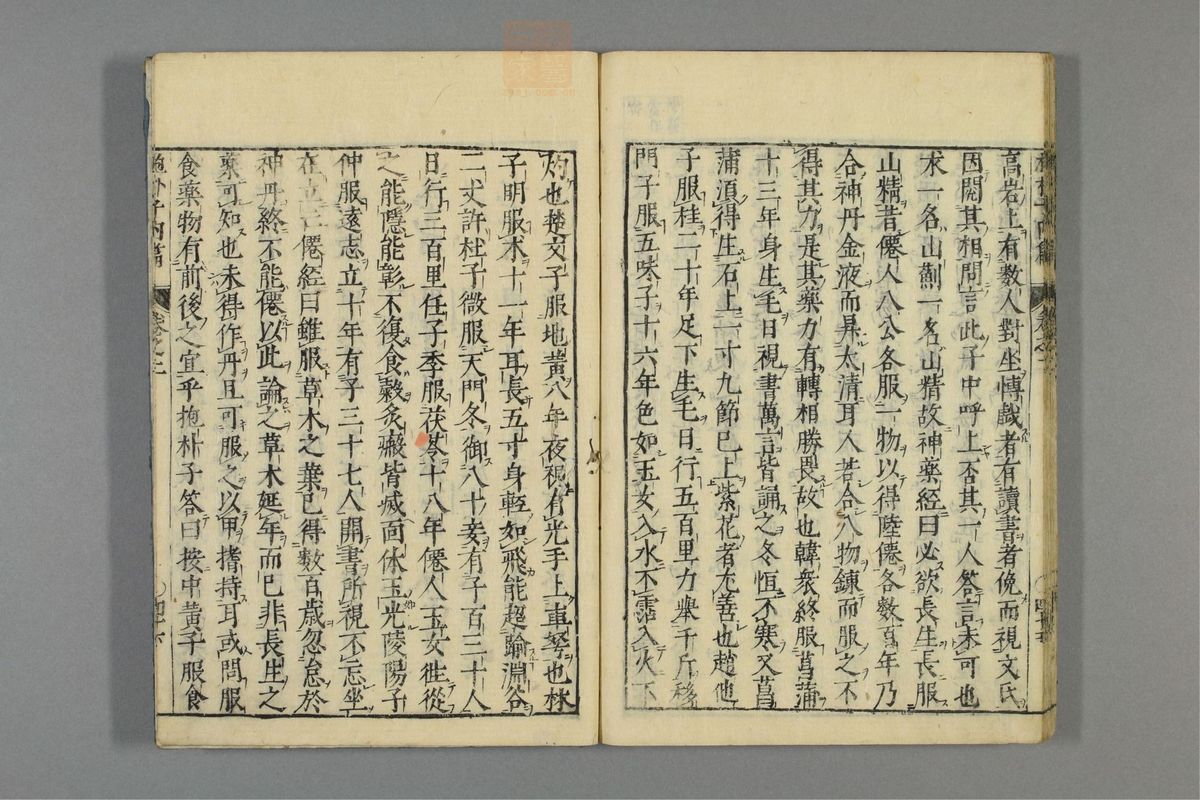 高岩上有數人對坐愽戯者有讀書者俛而視文氏
因聞其相問言此子中呼上否其一人答言未可也
朮一名山薊一名山精故神藥經曰必欲長生長服
山精昔僊人八公各服一物以得陸僊各數百年乃
合神丹金液而昇太清耳人若合八物錬而服之不
得其力是其藥力有轉相勝畏故也韓衆終服菖蒲
十三年身生毛日視書萬言皆誦之冬恒不寒又菖
蒲湏得生石上一寸九節已上紫花者尤善也趙他
子服桂二十年足下生毛日行五百里力舉千斤移
門子服五味子十六年色如玉女入水不霑入火不
灼也楚文子服地黃八年夜視有光手上車弩也林
子明服术十一年耳長五寸身輕如飛能超踰淵谷
二丈許杜子微服天門冬御八十妾有子百三十人
日行三百里任子季服茯苓十八年僊人玉女徃從
之能隱能彰不復食穀灸瘢皆滅面体玉光陵陽子
仲服遠志立十年有子三十七人開書所視不忘坐
在立亡僊經曰雖服草木之葉已得數百歳忽怠於
神丹終不能僊以此論之草木延年而已非長生之
藥可知也未得作丹且可服之以甲搘持耳或問服
食藥物有前後之宜乎抱朴子答曰按中黃子服食
抱朴子内篇
卷之二